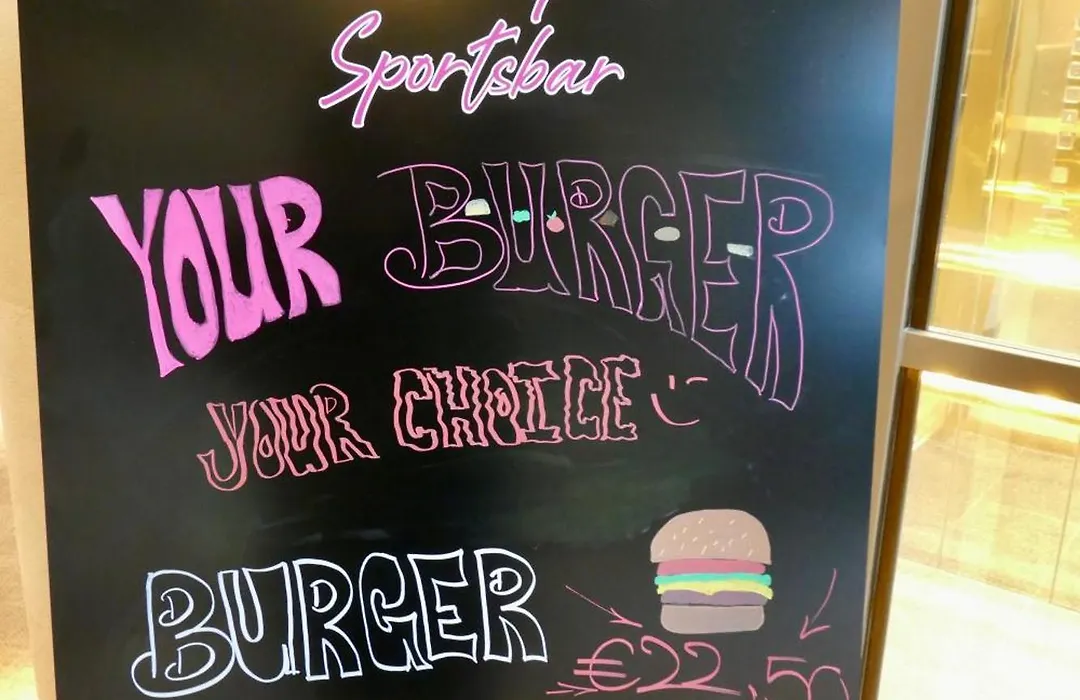 Sportsbar
YOUR BURGER
YOUR CHOICE
BURGER
€22,50